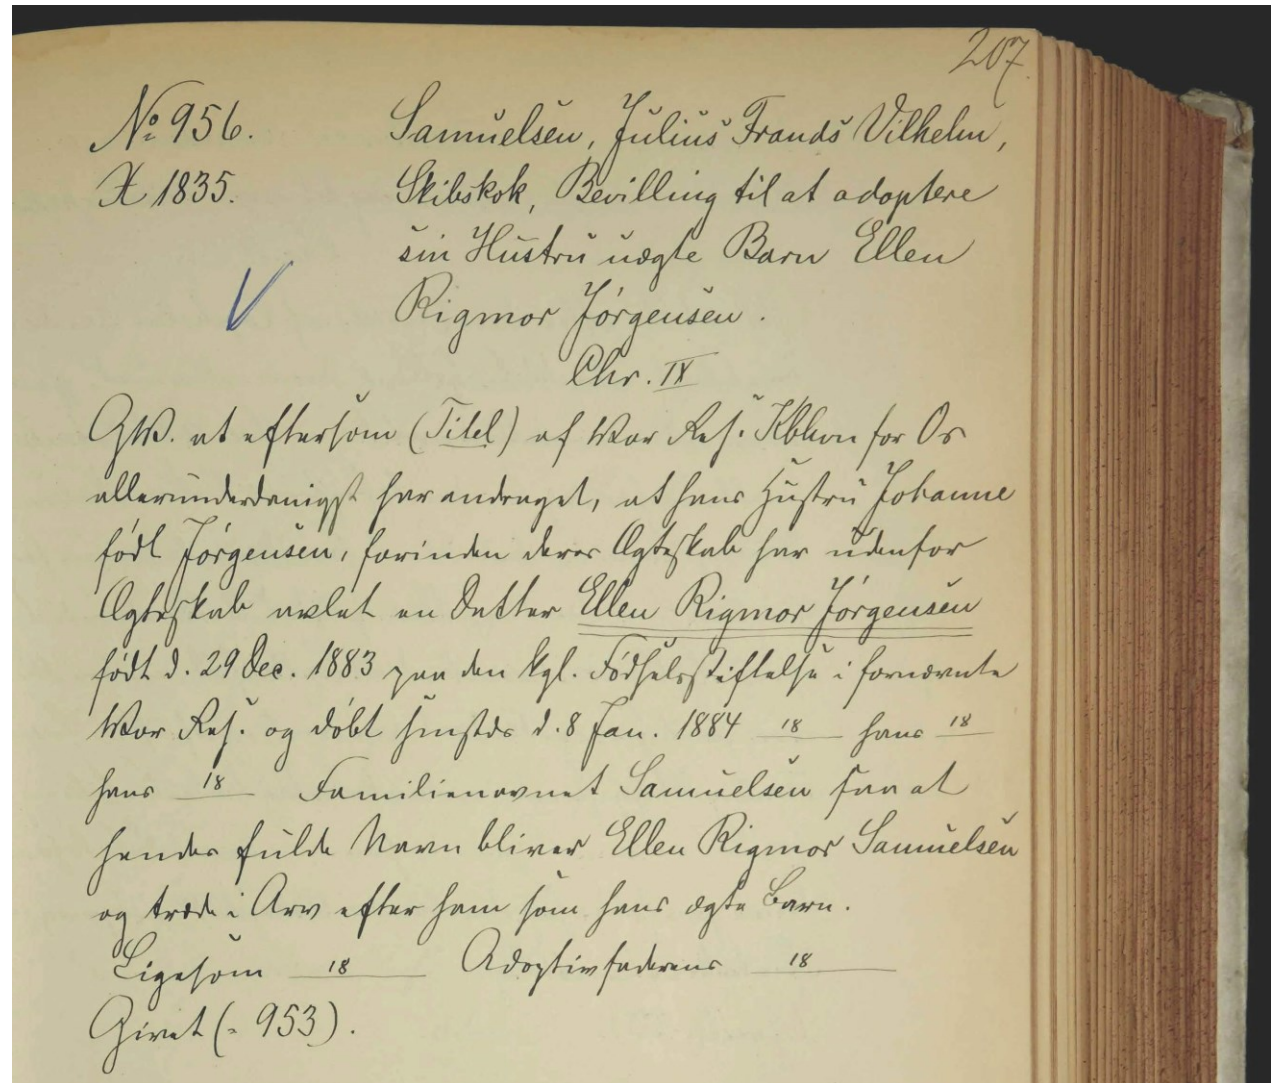 207.
No 956. Samuelsen, Julius Frands Vilhelm,
X 1835. Skibskok, Bevilling til at adoptere
sin Hustru uægte Barn Ellen
Rigmor Jørgensen.
Chr. IX
GW. at eftersom (Titel) af Vor Res. Kbhvn for Os
allerunderdanigst har andraget, at hans Hustru Johanne
født Jørgensen, forinden deres Ægteskab har udenfor
Ægteskab avlet en Datter Ellen Rigmor Jørgensen
født d. 29 Dec. 1883 paa den kgl. Fødselsstiftelse i fornævnte
Vor Res. og døbt smstds d. 8 Jan. 1884 18 hans 18
hans 18 Familienavnet Samuelsen saa at
hendes fulde Navn bliver Ellen Rigmor Samuelsen
og træde i Arv efter ham som hans ægte Barn.
Ligesom 18 Adoptivfaderens 18
Givet (= 953).